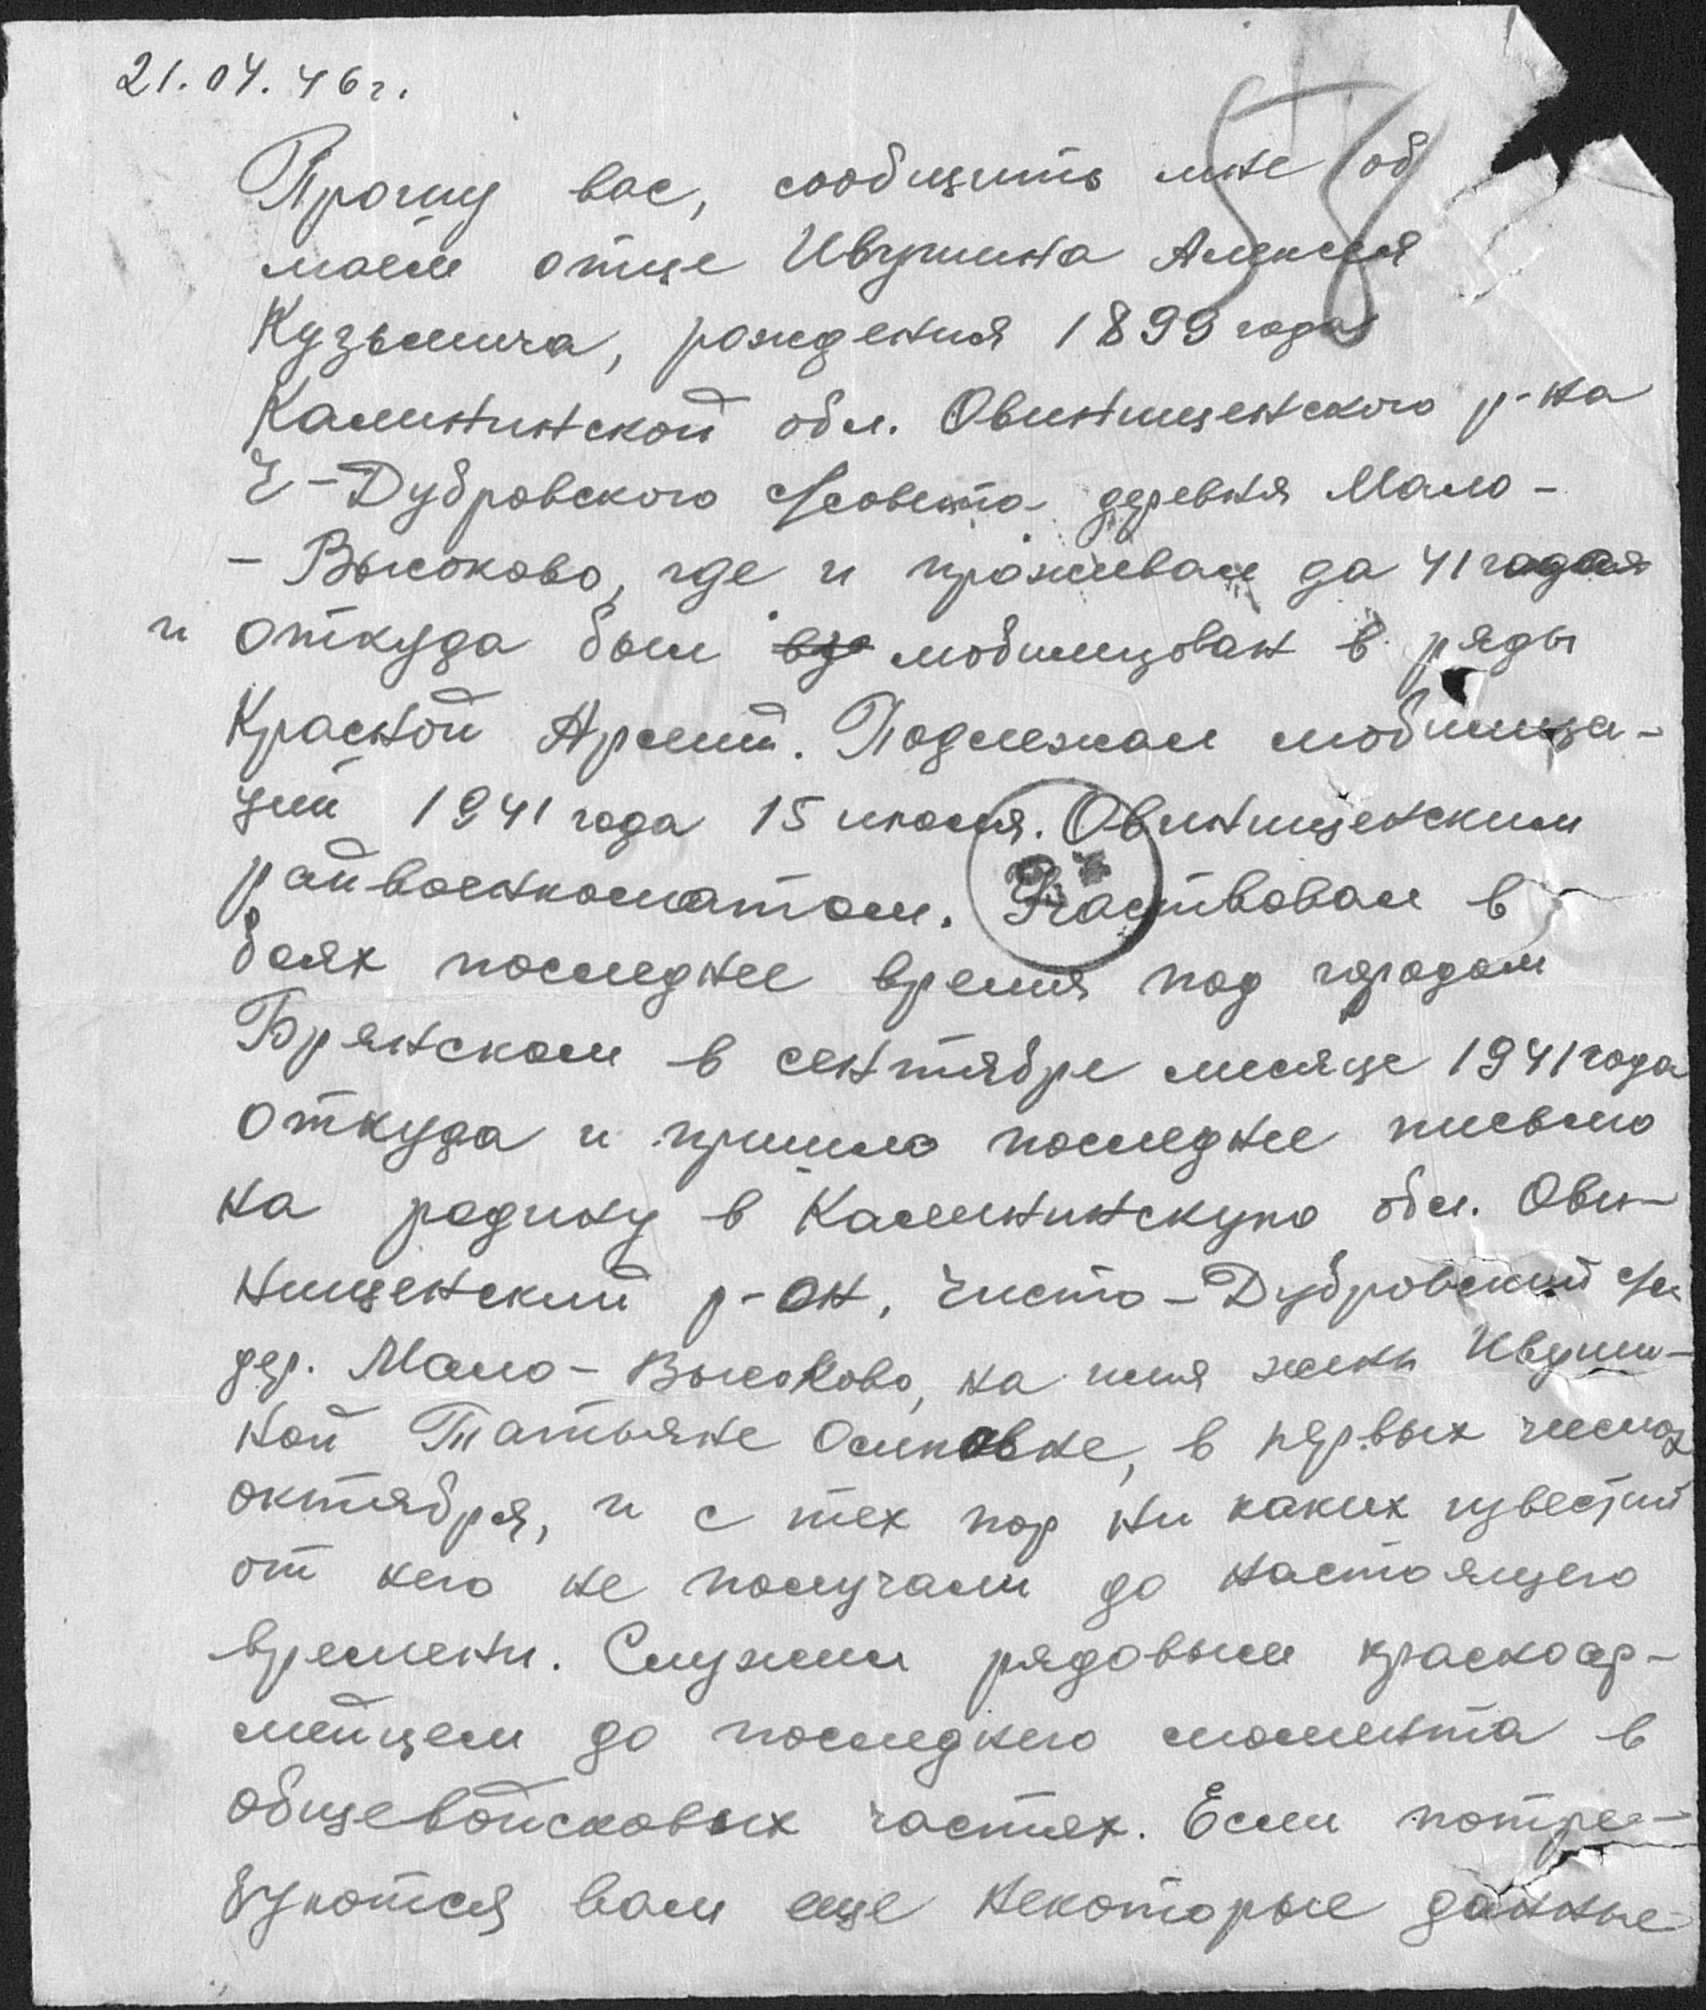 21.04.46г.
58
Прошу вас, сообщить мне об
моём отце Ивушина Алексея
Кузьмича, рождения 1899 года
Калининской обл. Овинищенского р-на
Ч-Дубровского с/совета деревня Мало-
- Высоково, где и проживал да 41 года
и откуда был моб лизован в ряды
Красной Армий. Подлежал мобилиза-
ций 1941 года 15 июля. Овинищенским
райвоенкоматом. Участвовал в
боях последнее время под городом
Брянском в сентябре месяце 1941 года
откуда и пришло последнее письмо
на родину в Калининскую обл. Ови-
нищенский р-он, Чисто-Дубровский с/с
дер. Мало-Высоково, на имя жены Ивуши-
ной Татьяне Осиповне, в первых числах
октября, и с тех пор ни каких известий
от него не получали до настоящего
времени. Служил рядовым красноар-
мейцем до последнего момента в
общевойсковых частях. Если потре-
буются вам еще некоторые данные